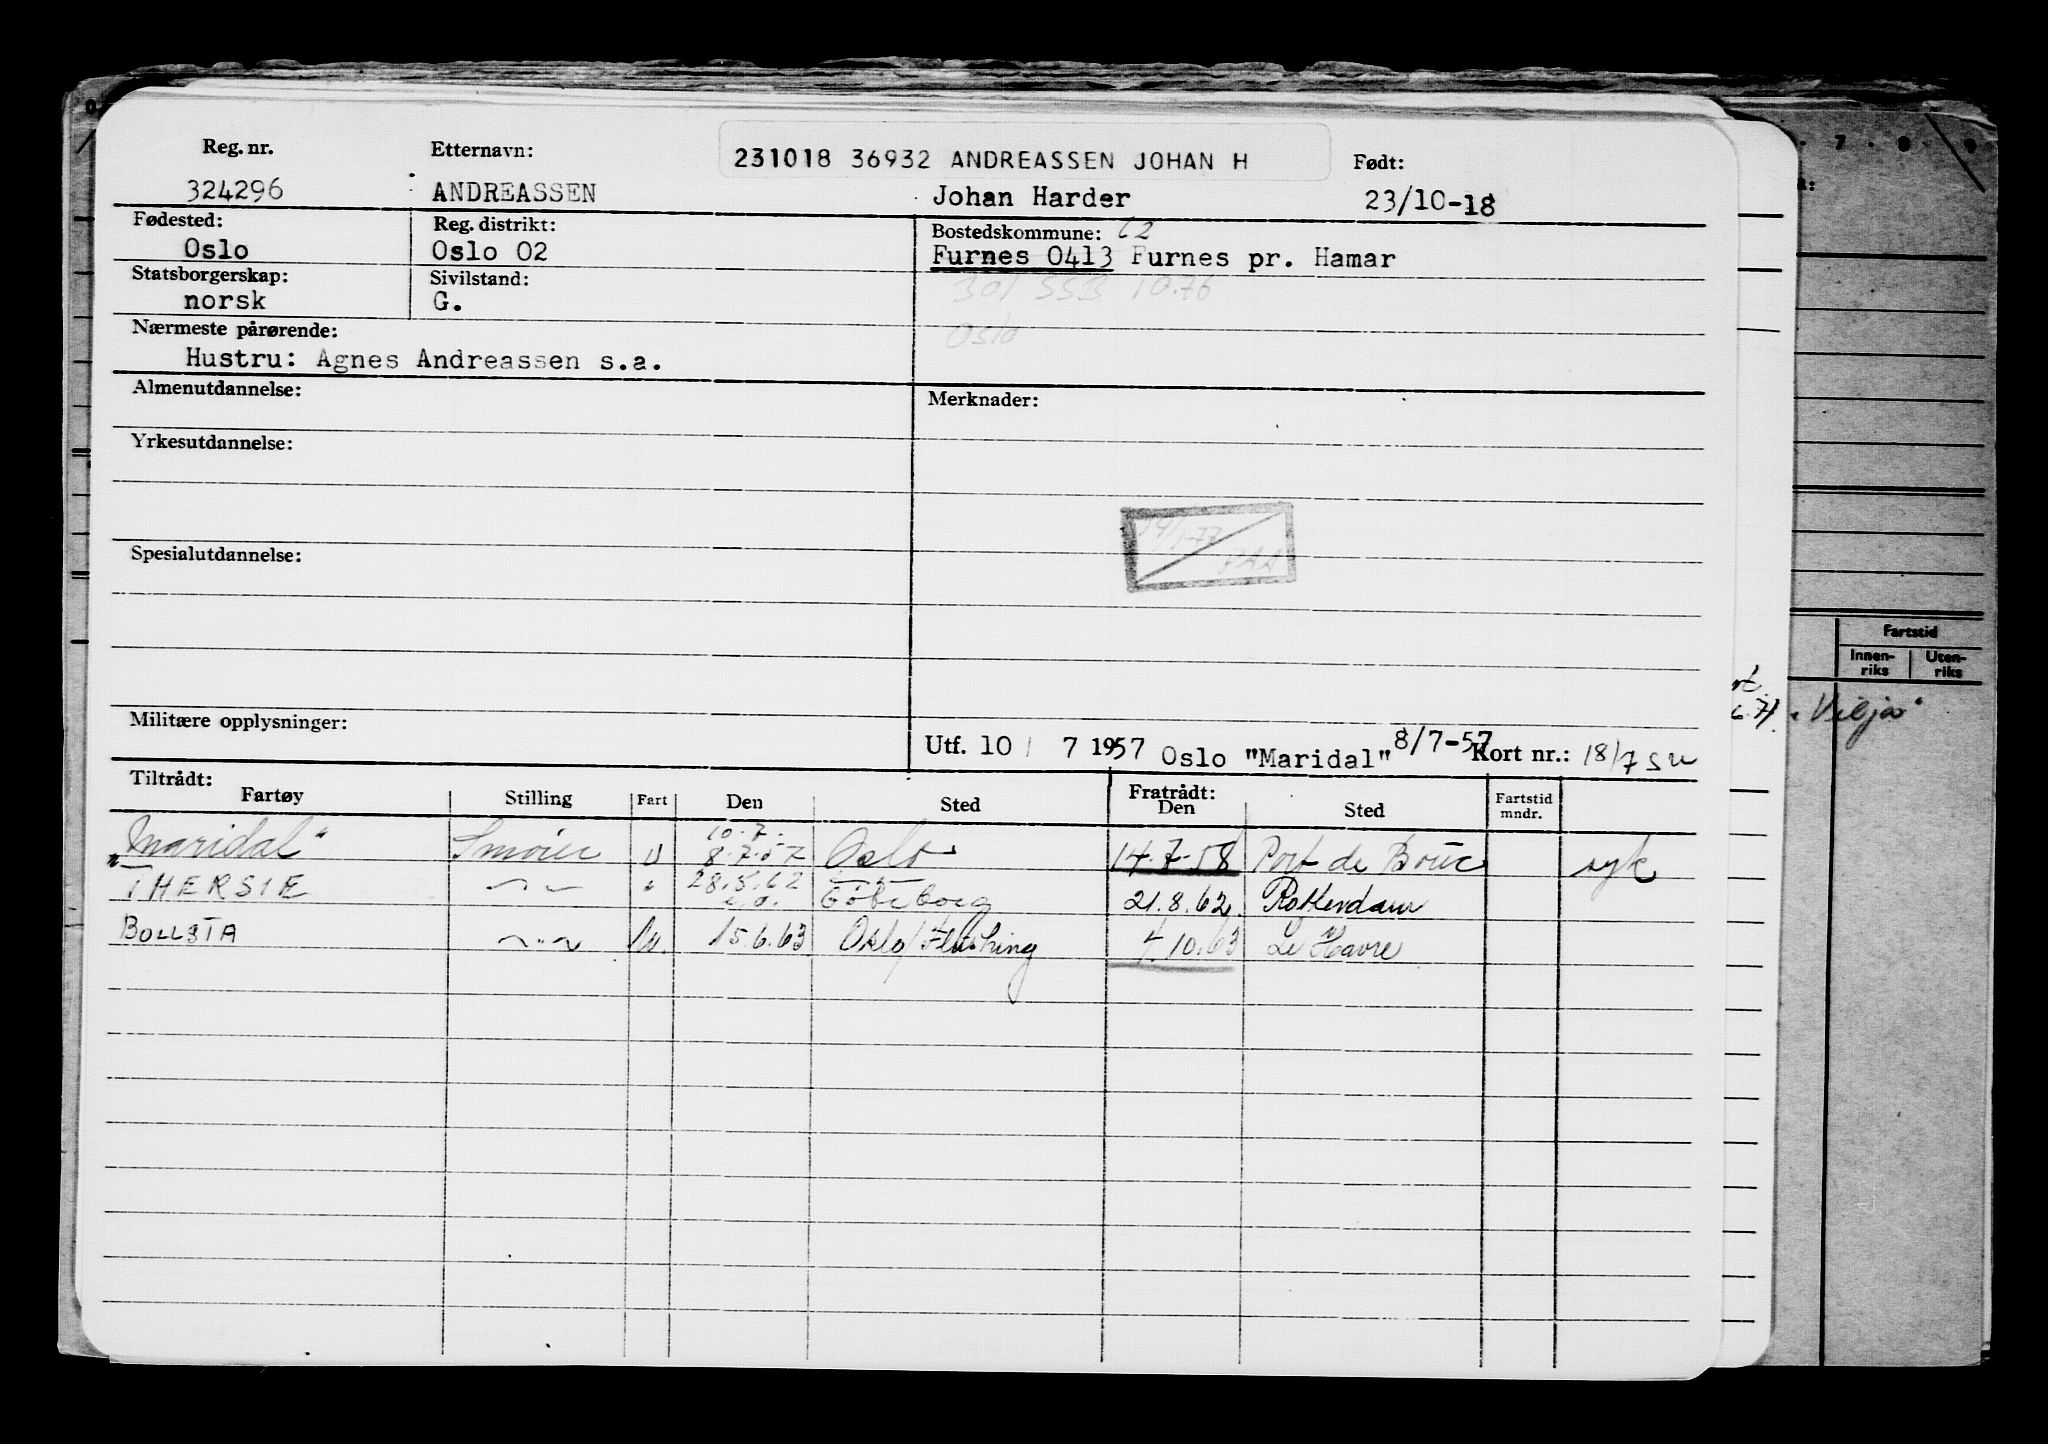 Reg. nr. Etternavn: 231018 36932 ANDREASSEN JOHAN H Født:
324296 ANDREASSEN Johan Harder 23/10-18
Fødested: Reg. distrikt: Bostedskommune: 62
Oslo Oslo 02 Furnes 0413 Furnes pr. Hamar
Statsborgerskap: Sivilstand: 301 SSB 10.76
norsk G.
Nærmeste pårørende: Oslo
Hustru: Agnes Andreassen s.a.
Almenutdannelse: Merknader:
Yrkesutdannelse:
Spesialutdannelse:
Militære opplysninger:
Utf. 10 / 7 1957 Oslo "Maridal" 8/7-57 Kort nr.: 18/7 57
Tiltrådt: Fratrådt:
Fartøy Stilling Fart Den Sted Den Sted Fartstid mndr.
10.7.
"Maridal" Smører U 8.7.57 Oslo 14.7-58 Port de Bouc syk
THERSIE " 28.5.62 Göteborg 21.8.62 Rotterdam
BOLLSTA U. 15.6.63 Oslo/Flushing 4.10.63 Le Havre
7 8 9
Fartstid
Innen-riks Uten-riks
"Vilja"